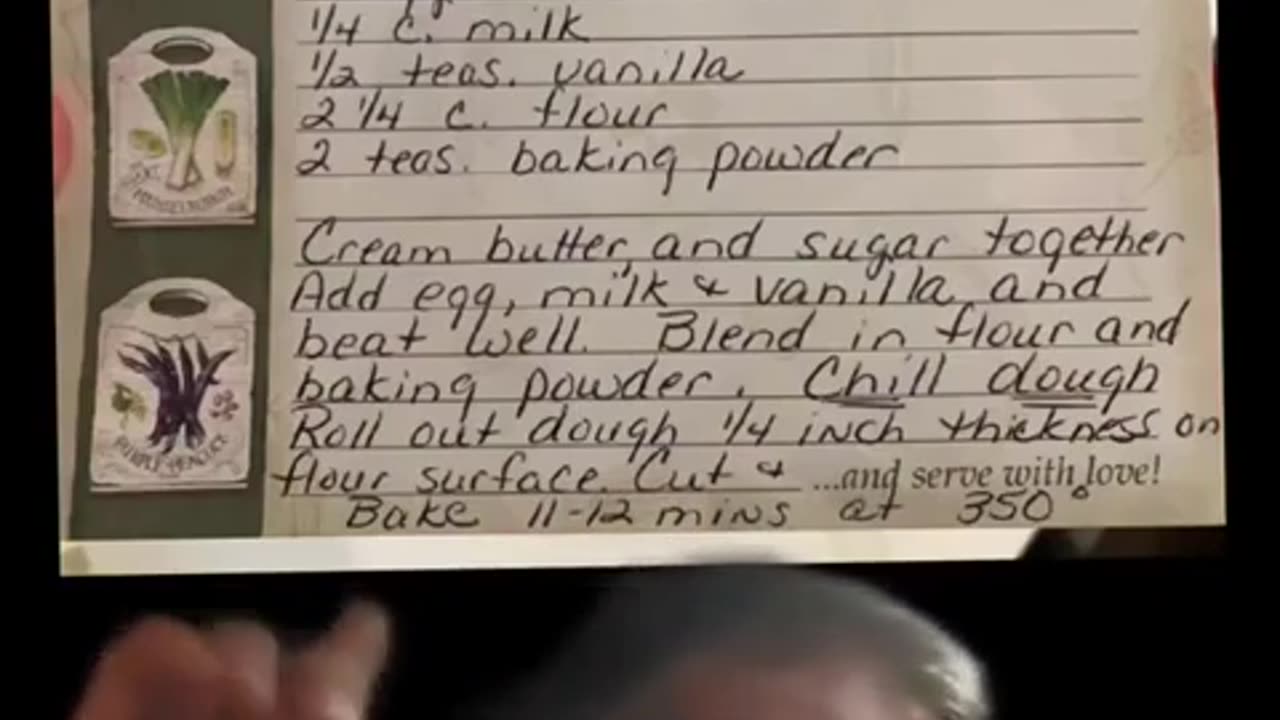 1/4 c. milk
1/2 teas. vanilla
2 1/4 c. flour
2 teas. baking powder
Cream butter, and sugar together
Add egg, milk & vanilla and
beat well. Blend in flour and
baking powder. Chill dough
Roll out dough 1/4 inch thickness on
flour surface. Cut & ...and serve with love!
Bake 11-12 mins at 350°